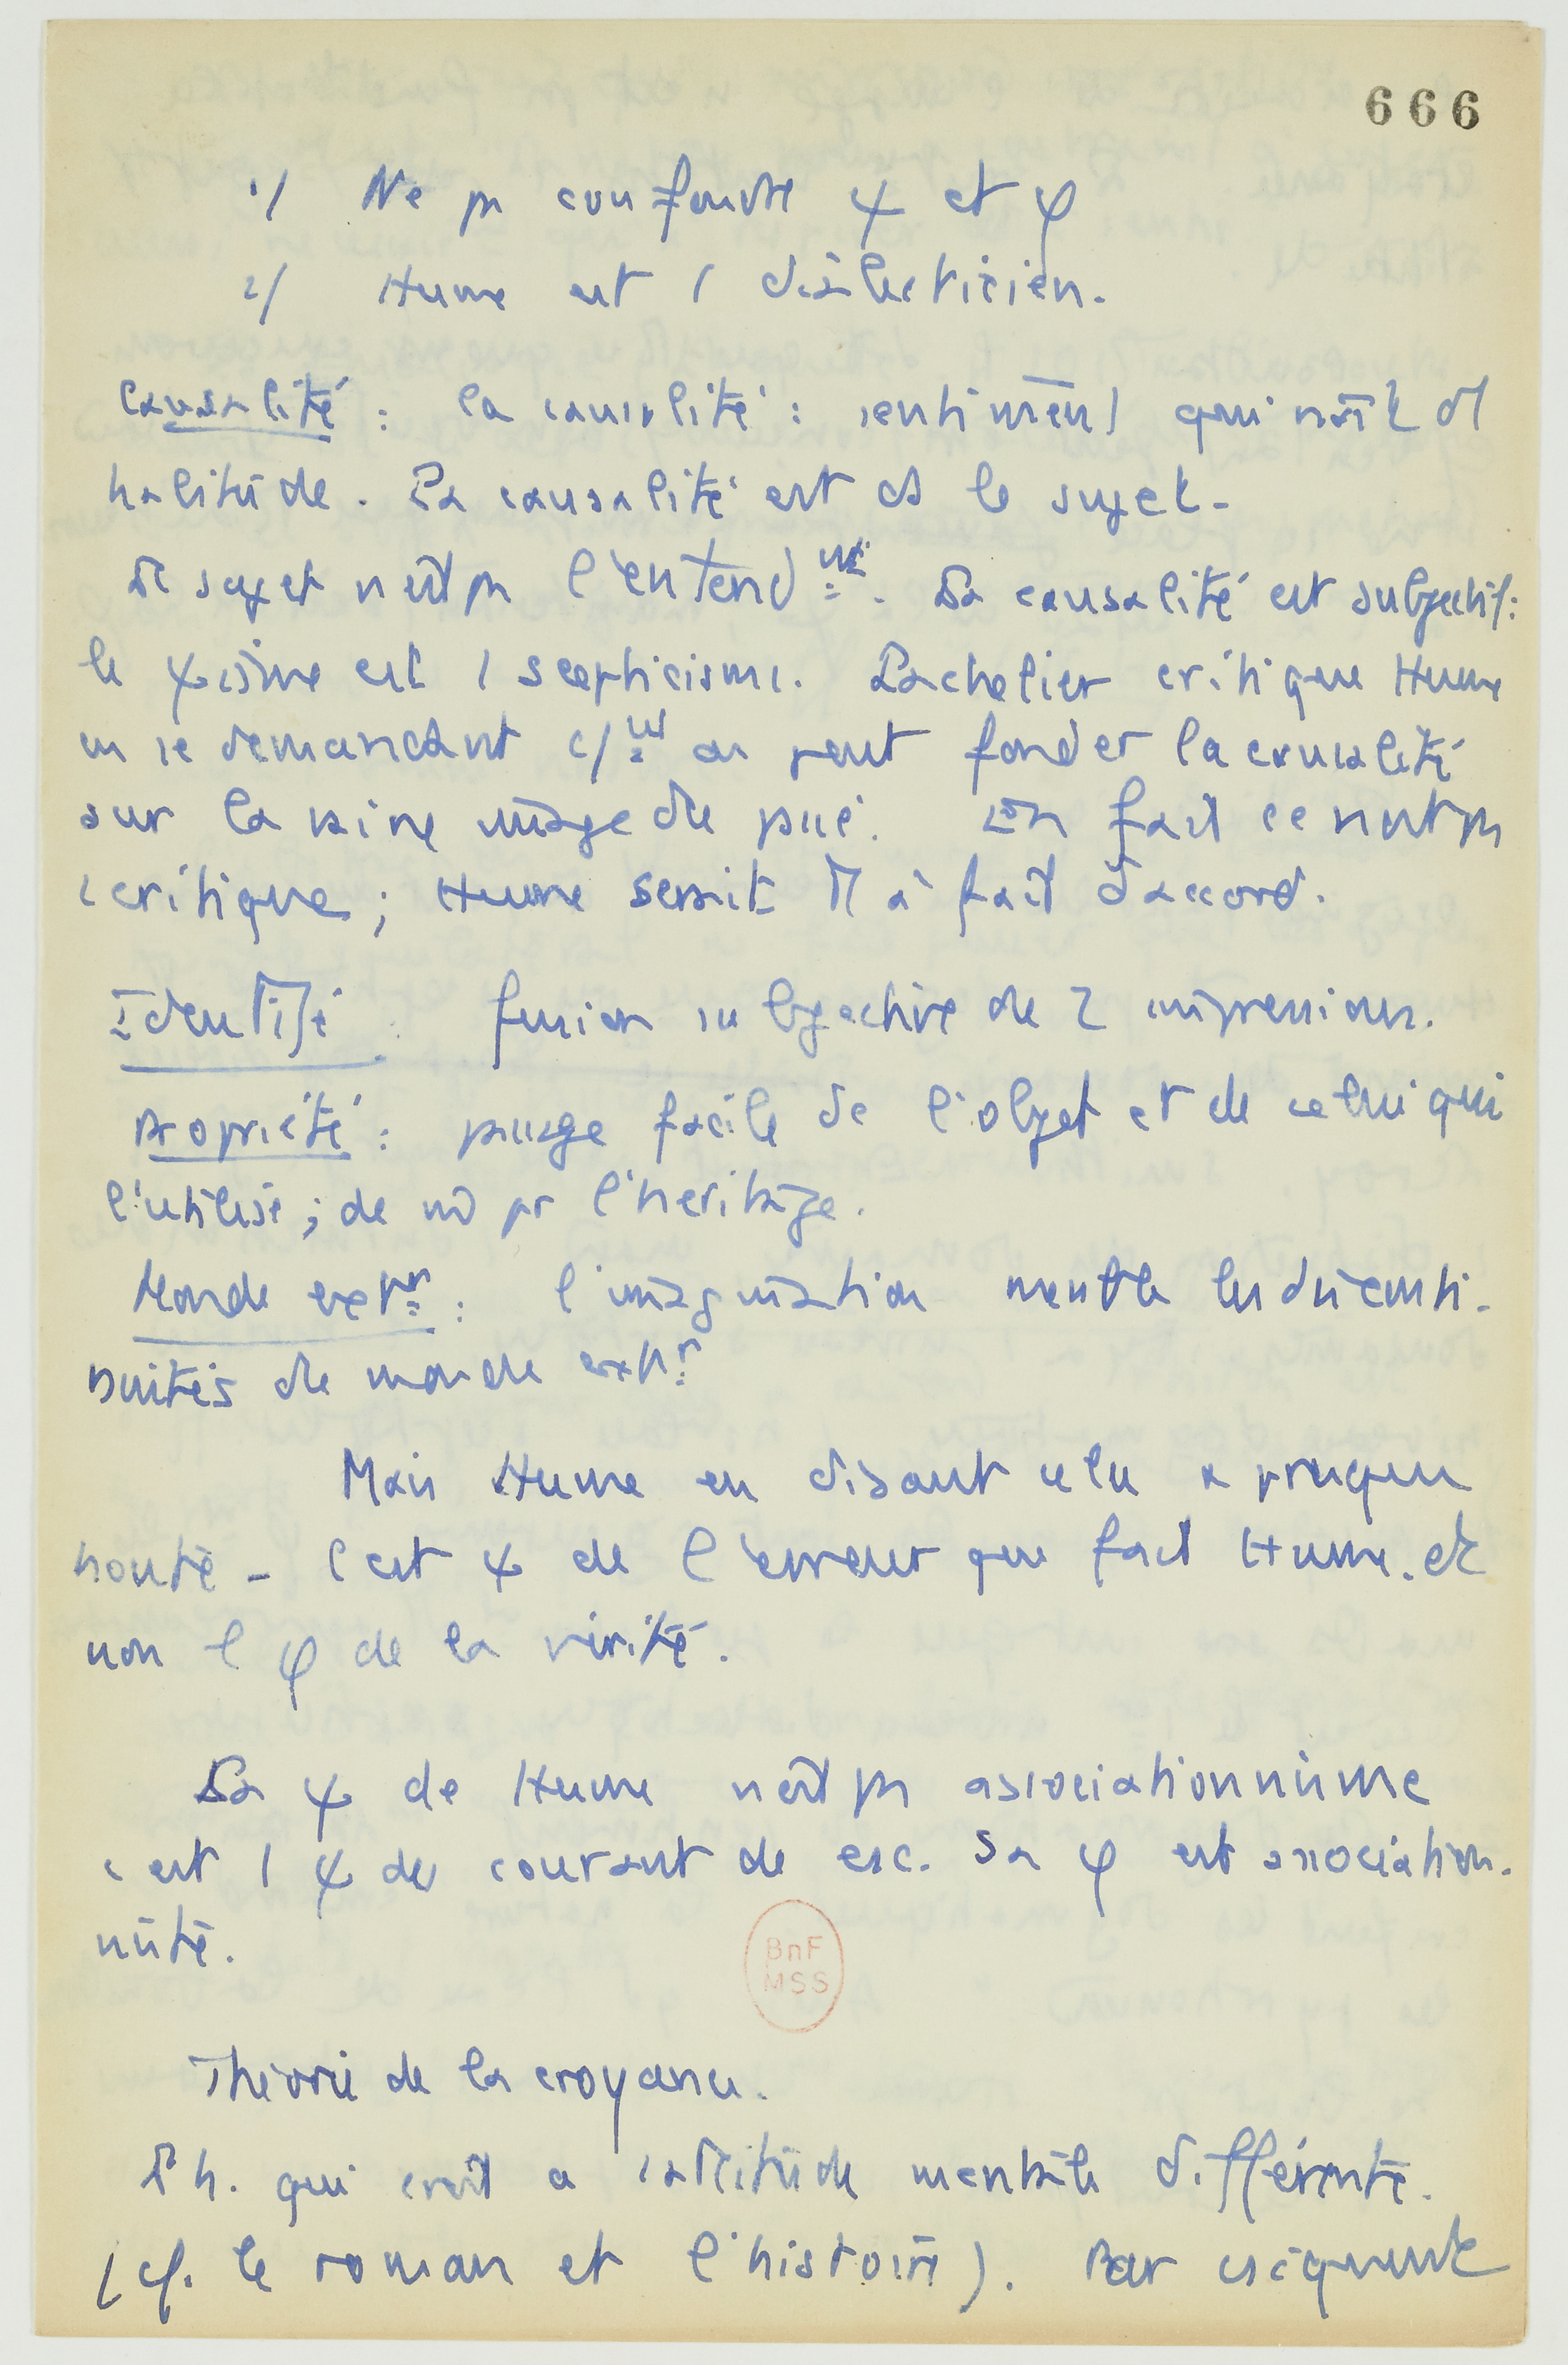 666
1/ Ne p confondre ψ et φ
2/ Hume est 1 dialecticien.
Causalité : la causalité : sentiment qui naît d
habitude. La causalité est ds le sujet.
Le sujet n'est p l'entendmt. La causalité est subjectif :
le ψisme est 1 scepticisme. Lachelier critique Hume
en se demandant c/mt on peut fonder la causalité
sur la vaine image du passé. En fait ce n'est p
1 critique ; Hume serait tt à fait d'accord.
Identité : fusion subjective de 2 impressions.
Propriété : passage facile de l'objet et de celui qui
l'utilise ; de m pr l'héritage.
Monde extr : l'imagination meuble les disconti-
nuités du monde extr
Mais Hume en disant cela a presque
honte - C'est ψ de l'erreur que fait Hume. et
non l φ de la vérité.
La ψ de Hume n'est p associationnisme
c'est 1 ψ du courant de csc. Sa φ est association-
niste.
Théorie de la croyance.
L'h. qui croit a 1 attitude mentale différente.
(cf. le roman et l'histoire). Par cséquent
BnF
MSS